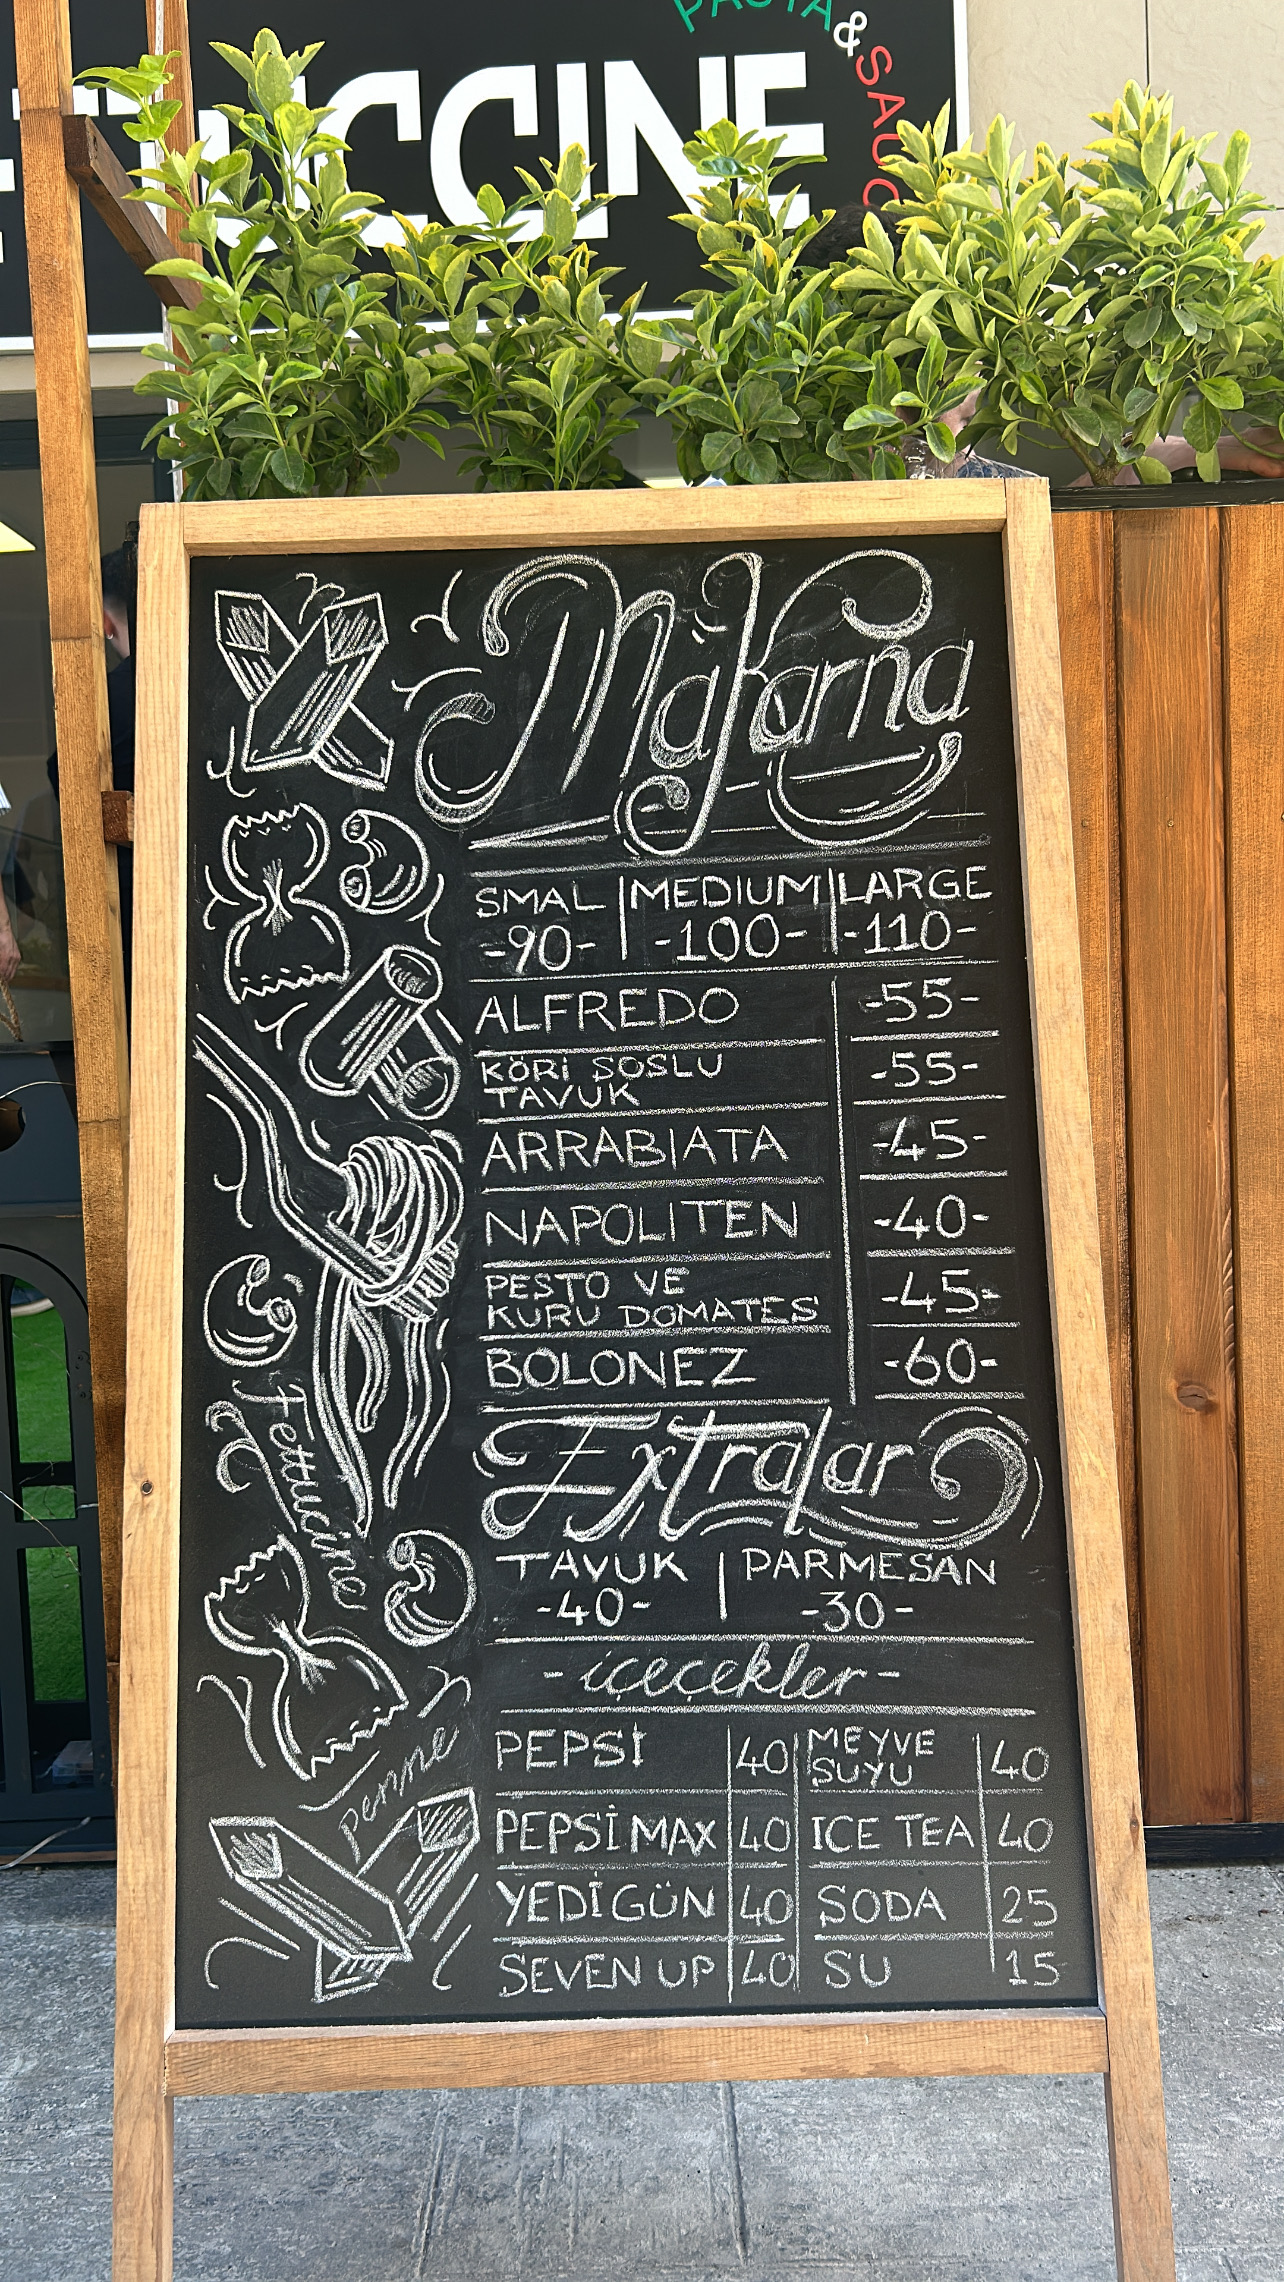 PASTA & SAUC
TUCCINE
Makarna
SMAL | MEDIUM | LARGE
-90- | -100- | -110-
ALFREDO -55-
KÖRİ SOSLU
TAVUK -55-
ARRABIATA -45-
NAPOLITEN -40-
PESTO VE
KURU DOMATES -45-
BOLONEZ -60-
Extralar
TAVUK | PARMESAN
-40- -30-
-içeçekler-
PEPSİ 40 MEYVE SUYU 40
PEPSİ MAX 40 ICE TEA 40
YEDİGÜN 40 SODA 25
SEVEN UP 40 SU 15
Fettucine
penne